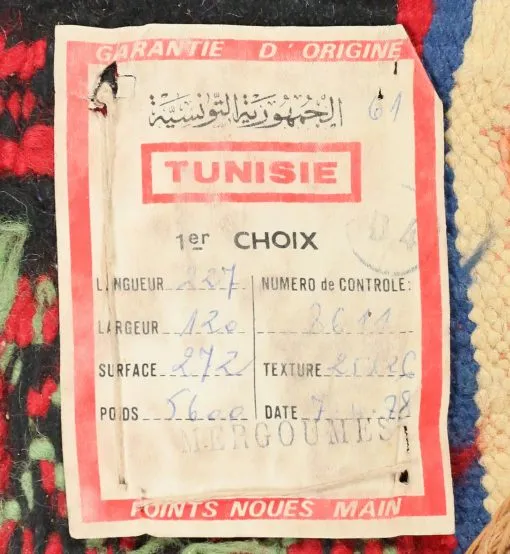 GARANTIE D'ORIGINE
الجمهورية التونسية
61
TUNISIE
1er CHOIX
D4
LONGUEUR 227
NUMERO de CONTROLE:
LARGEUR 120
8611
SURFACE 272
TEXTURE
POIDS 5600
DATE 78
MERGOUMES
POINTS NOUES MAIN